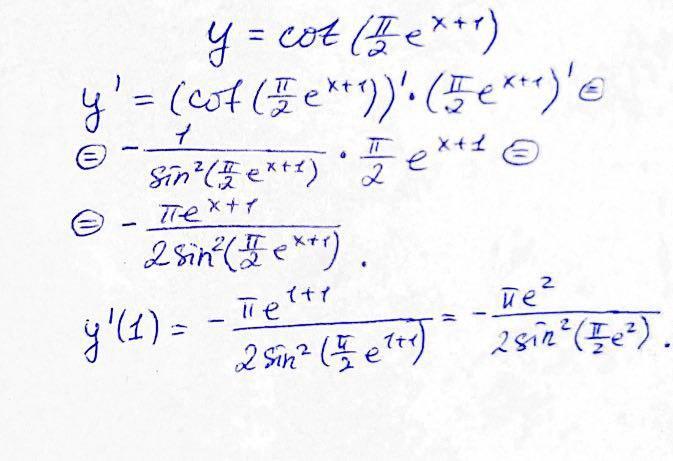 y = cot (π/2 e^(x+1))
y' = (cot (π/2 e^(x+1)))' · (π/2 e^(x+1))' ⊜
⊜ - 1/(sin²(π/2 e^(x+1))) · π/2 e^(x+1) ⊜
⊜ - πe^(x+1)/(2 sin²(π/2 e^(x+1))) .
y'(1) = - πe^(1+1)/(2 sin² (π/2 e^(1+1))) = - πe²/(2 sin² (π/2 e²)) .